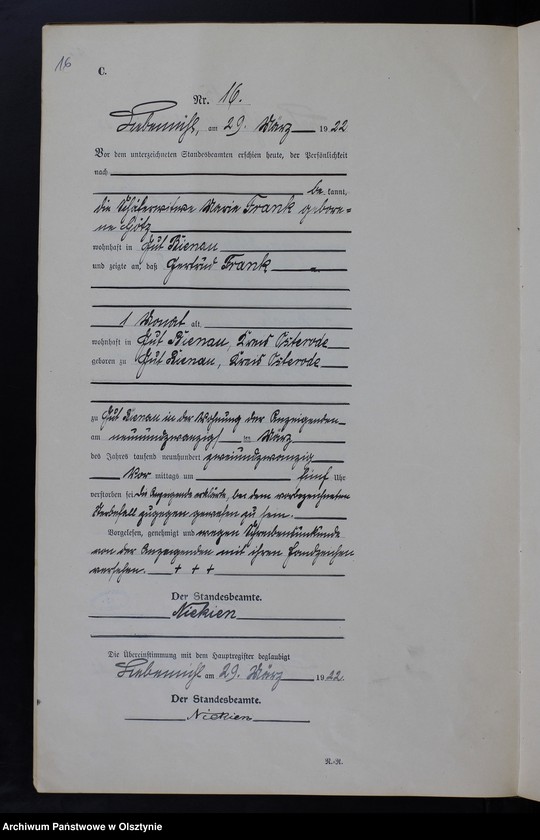 16
C.
Nr. 16.
Liebemühl, am 29. März 1922
Vor dem unterzeichneten Standesbeamten erschien heute, der Persönlichkeit
nach
be kannt,
die Schäferwitwe Marie Frank gebore=
ne Götz
wohnhaft in Gut Bienau
und zeigte an, daß Gertrud Frank
1 Monat alt,
wohnhaft in Gut Bienau, Kreis Osterode
geboren zu Gut Bienau, Kreis Osterode
zu Gut Bienau in der Wohnung der Anzeigenden
am neunundzwanzigsten März
des Jahres tausend neunhundert zweiundzwanzig
Vor mittags um fünf Uhr
verstorben sei. Die Anzeigende erklärte, bei dem vorbezeichneten
Sterbefall zugegen gewesen zu sein.
Vorgelesen, genehmigt und wegen Schreibensunkunde
von der Anzeigenden mit ihren Handzeichen
versehen. + + +
Der Standesbeamte.
Nickien
Die Übereinstimmung mit dem Hauptregister beglaubigt
Liebemühl am 29. März 1922.
Der Standesbeamte.
Nickien
R.-R.
Archiwum Państwowe w Olsztynie